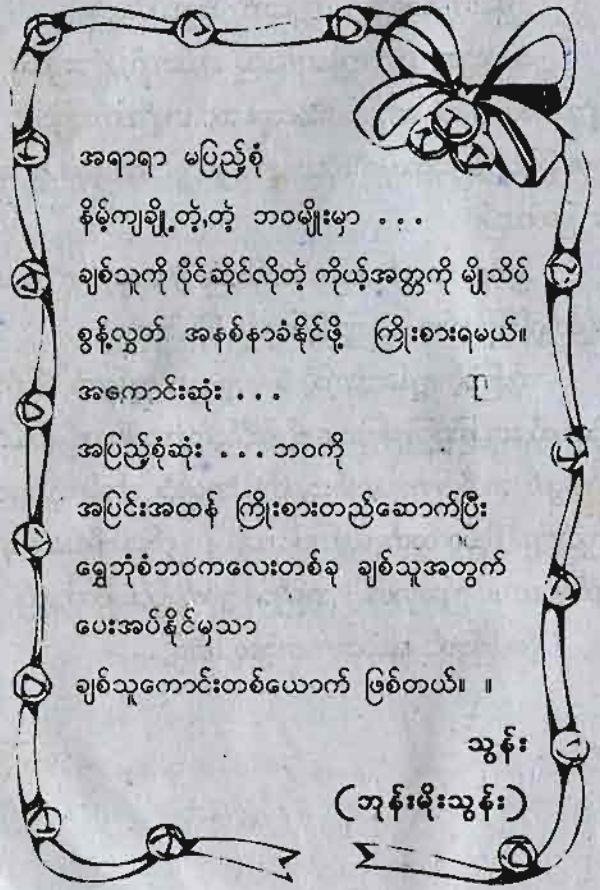 အရာရာ မပြည့်စုံ
နိမ့်ကျချို့တဲ့,တဲ့ ဘဝမျိုးမှာ . . .
ချစ်သူကို ပိုင်ဆိုင်လိုတဲ့ ကိုယ့်အတ္တကို မျိုသိပ်
စွန့်လွှတ် အနစ်နာခံနိုင်ဖို့ ကြိုးစားရမယ်။
အကောင်းဆုံး . . .
အပြည့်စုံဆုံး . . . ဘဝကို
အပြင်းအထန် ကြိုးစားတည်ဆောက်ပြီး
ရွှေဘုံစံဘဝကလေးတစ်ခု ချစ်သူအတွက်
ပေးအပ်နိုင်မှသာ
ချစ်သူကောင်းတစ်ယောက် ဖြစ်တယ်။ ။
သွန်း
(ဘုန်းမိုးသွန်း)